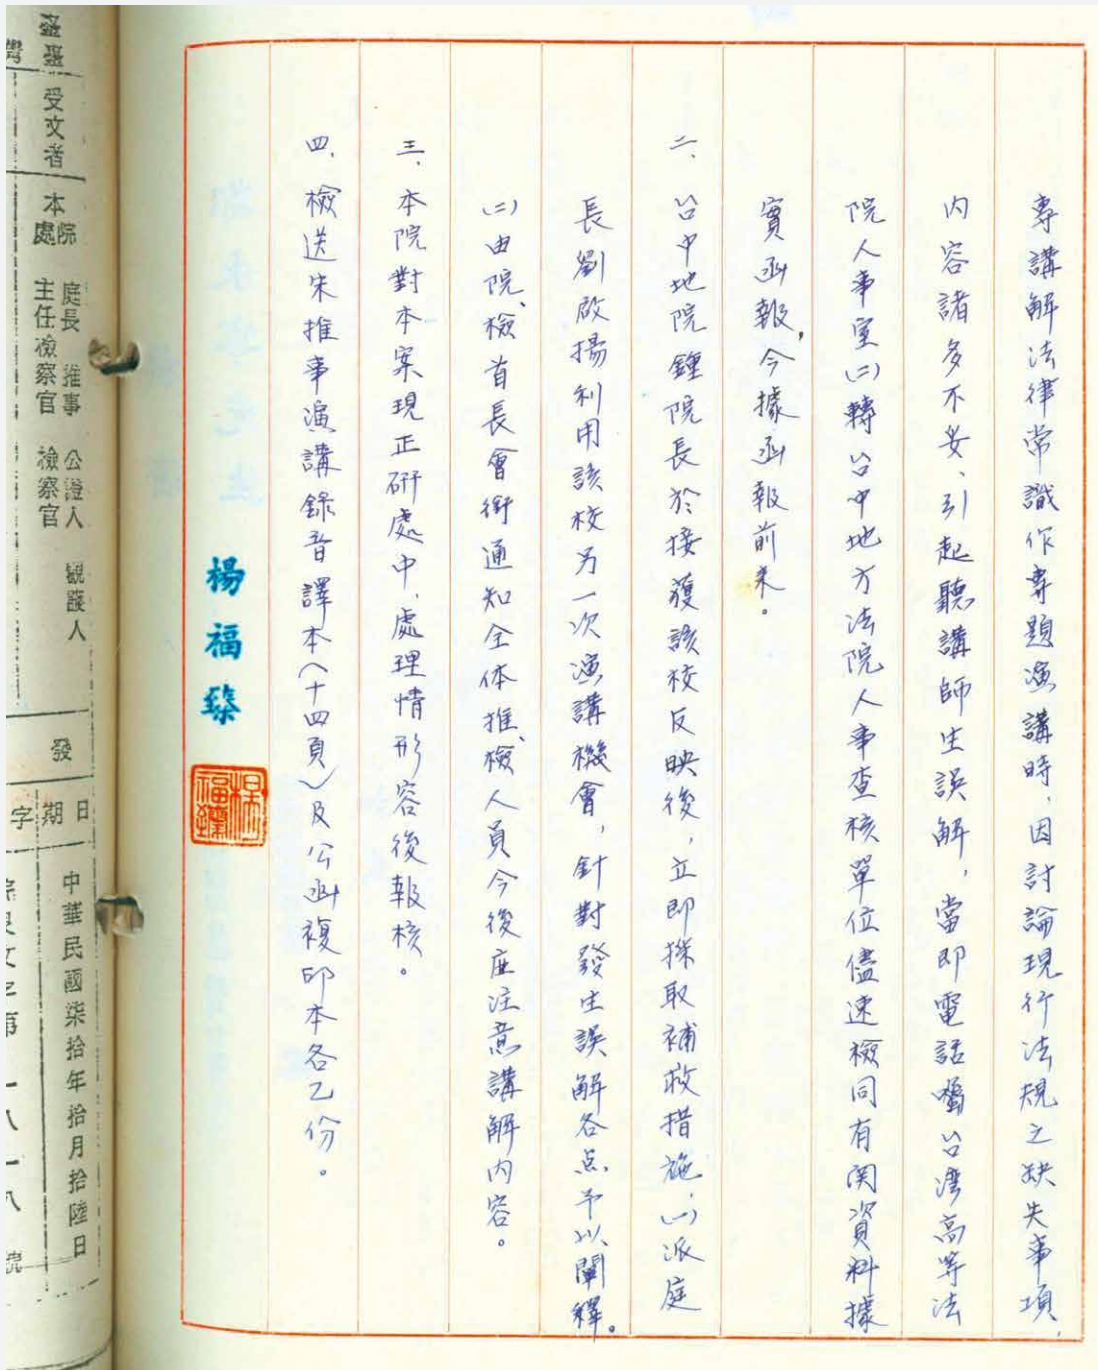 專講解法律常識作專題演講時，因討論現行法規之缺失事項，
內容諸多不妥、引起聽講師生誤解，當即電話囑台灣高等法
院人事室(二)轉台中地方法院人事查核單位儘速檢同有関資料據
實函報，今據函報前來。
二、台中地院鍾院長於接獲該校反映後，立即採取補救措施：(一)派庭
長劉啟揚利用該校另一次演講機會，針對發生誤解各点予以闡釋。
(二)由院、檢首長會銜通知全体推、檢人員今後应注意講解內容。
三、本院對本案現正研處中，處理情形容後報核。
四、檢送朱推事演講錄音譯本(十四頁)及公函複印本各乙份。
楊福臻
受文者
本院處
庭長 推事 公證人 觀護人
主任檢察官 檢察官
發
日期
字
中華民國柒拾年拾月拾陸日
一八一八號